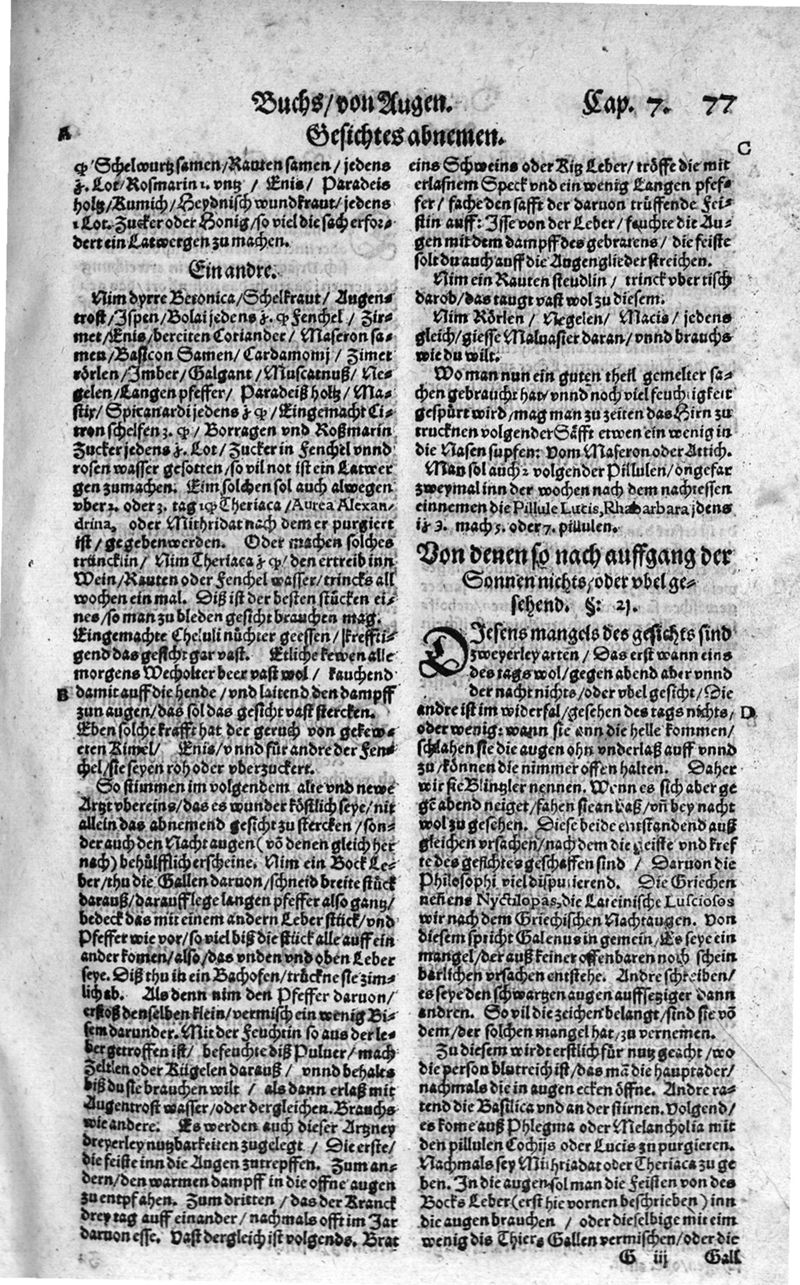 Buchs/von Augen. Cap. 7. 77
Gesichtes abnemen.
A
Schelwurtz samen/Rauten samen/jedens
ʒ. Lot/Rosmarin 1. vntz / Enis/ Paradeis
holtz/Kumich/Heydnisch wundkraut/jedens
1 Lot. Zucker oder Honig/so viel die sach erfor-
dert ein Latwergen zu machen.
Ein andre.
Nim dyrre Betonica/Schelkraut/ Augen-
trost/Ispen/Bolai jedens ʒ. Fenchel / Zir-
met/Enis/bereiten Coriander / Maseron sa-
men/Basilcon Samen/Cardamomj/ Zimet
rörlen/Imber/Galgant/Muscatnuß/ Ne-
gelen/Langen pfeffer/ Paradeiß holtz/Ma-
stix/Spicanardi jedens /Eingemacht Ci-
tron schelfen 3. / Borragen vnd Roßmarin
Zucker jedens ʒ. Lot/Zucker in Fenchel vnnd
rosen wasser gesotten/so vil not ist ein Latwer
gen zumachen. Eim solchen sol auch alwegen
vber 2. oder 3. tag 1 Theriaca/Aurea Alexan-
drina, oder Mithridat nach dem er purgiert
ist/gegeben werden. Oder machen solches
trüncklin/ Nim Theriaca den ertreib inn
Wein/Rauten oder Fenchel wasser/trincks all
wochen ein mal. Diß ist der besten stücken ei-
nes/so man zu bleden gesicht brauchen mag.
Eingemachte Chebuli nüchter geessen/krefftі-
gend das gesicht gar vast. Etliche kewen alle
morgens Wecholter beer vast wol/ kauchend
B damit auff die hende/vnd laitend den dampff
zun augen/das sol das gesicht vast stercken.
Eben solche krafft hat der geruch von gekew-
eten Kimel/ Enis/vnnd für andre der Fen-
chel/sie seyen roh oder vberzuckert.
So stimmen im volgendem alte vnd newe
Artzt vbereins/das es wunder köstlich seye/nit
allein das abnemend gesicht zu stercken/son-
der auch den Nacht augen (võ denen gleich her
nach) behülfflich erscheine. Nim ein Bock Le-
ber/thu die Gallen daruon/schneid breite stück
darauß/darauff lege langen pfeffer also gantz/
bedeck das mit einem andern Leber stück/vnd
Pfeffer wie vor/so viel biß die stück alle auff ein
ander komen/also/das vnden vnd oben Leber
seye. Diß thu in ein Bachofen/trückne sie zim-
lich ab. Als denn nim den Pfeffer daruon/
erstoß denselben klein/vermisch ein wenig Bi-
sem darunder. Mit der Feuchtin so aus der le-
ber getroffen ist/ befeuchte diß Puluer/mach
Zeltlen oder Kügelen darauß/ vnnd behalts
biß du sie brauchen wilt / als dann erlaß mit
Augentrost wasser/oder dergleichen. Brauchs
wie andere. Es werden auch dieser Artzney
dreyerley nutzbarkeiten zugelegt / Die erste/
die feiste inn die Augen zutrepffen. Zum an-
dern/den warmen dampff in die offne augen
zu entpfahen. Zum dritten/das der Kranck
drey tag auff einander/nachmals offt im Jar
daruon esse. Vast dergleich ist volgends. Brat
C
eins Schweins oder Kitz Leber/tröffe die mit
erlaßnem Speck vnd ein wenig Langen pfef-
fer/fache den safft der daruon trüffende Fei-
stin auff: Isse von der Leber/feuchte die Au-
gen mit dem dampff des gebratens/die feiste
solt du auch auff die Augenglieder streichen.
Nim ein Rauten steudlin/ trinck vber tisch
darob/das taugt vast wol zu diesem.
Nim Rörlen/ Negelen/ Macis/ jedens
gleich/giesse Maluasier daran/vnnd brauchs
wie du wilt.
Wo man nun ein guten theil gemelter sa-
chen gebraucht hat/vnnd noch viel feuchtigkeit
gespürt wird/mag man zu zeiten das Hirn zu
trucknen volgender Säfft etwen ein wenig in
die Nasen supfen: Vom Maseron oder Attich.
Man sol auch 2 volgender Pillulen/ongefar
zweymal inn der wochen nach dem nachtessen
einnemen die Pillule Lucis, Rhabarbara jdens
mach 5. oder 7. pillulen.
Von denen so nach auffgang der
Sonnen nichts/oder vbel ge-
sehend. §: 21.
DIesens mangels des gesichts sind
zweyerley arten/ Das erst wann eins
des tags wol/gegen abend aber vnnd
der nacht nichts/oder vbel gesicht/Die
andre ist im widerfal/gesehen des tags nichts/ D
oder wenig: wann sie ann die helle kommen/
schlahen sie die augen ohn vnderlaß auff vnnd
zu/können die nimmer offen halten. Daher
wir sie Blintzler nennen. Wenn es sich aber ge
gẽ abend neiget/fahen sie an baß/vñ bey nacht
wol zu gesehen. Diese beide entstandend auß
gleichen vrsachen/nach dem die geiste vnd kref
te des gesichtes geschaffen sind / Daruon die
Philosophi viel disputierend. Die Griechen
neñens Nyctilopas, die Lateinische Lusciosos
wir nach dem Griechischen Nachtaugen. Von
diesem spricht Galenus in gemein/Es seye ein
mangel/der auß keiner offenbaren noch schein
bärlichen vrsachen entstehe. Andre schreiben/
es seye den schwartzen augen auffsetziger dann
andren. So vil die zeichen belangt/sind sie võ
dem/der solchen mangel hat/zu vernemen.
Zu diesem wirdt erstlich für nutz geacht/wo
die person blutreich ist/das mã die hauptader/
nachmals die in augen ecken öffne. Andre ra-
tend die Basilica vnd an der stirnen. Volgend/
es kome auß Phlegma oder Melancholia mit
den pillulen Cochijs oder Lucis zu purgieren.
Nachmals sey Mithriadat oder Theriaca zu ge
ben. In die augen sol man die Feisten von des
Bocks Leber(erst hie vornen beschrieben) inn
die augen brauchen / oder dieselbige mit eim
wenig dis Thiers Gallen vermischen/oder die
G iij Gall